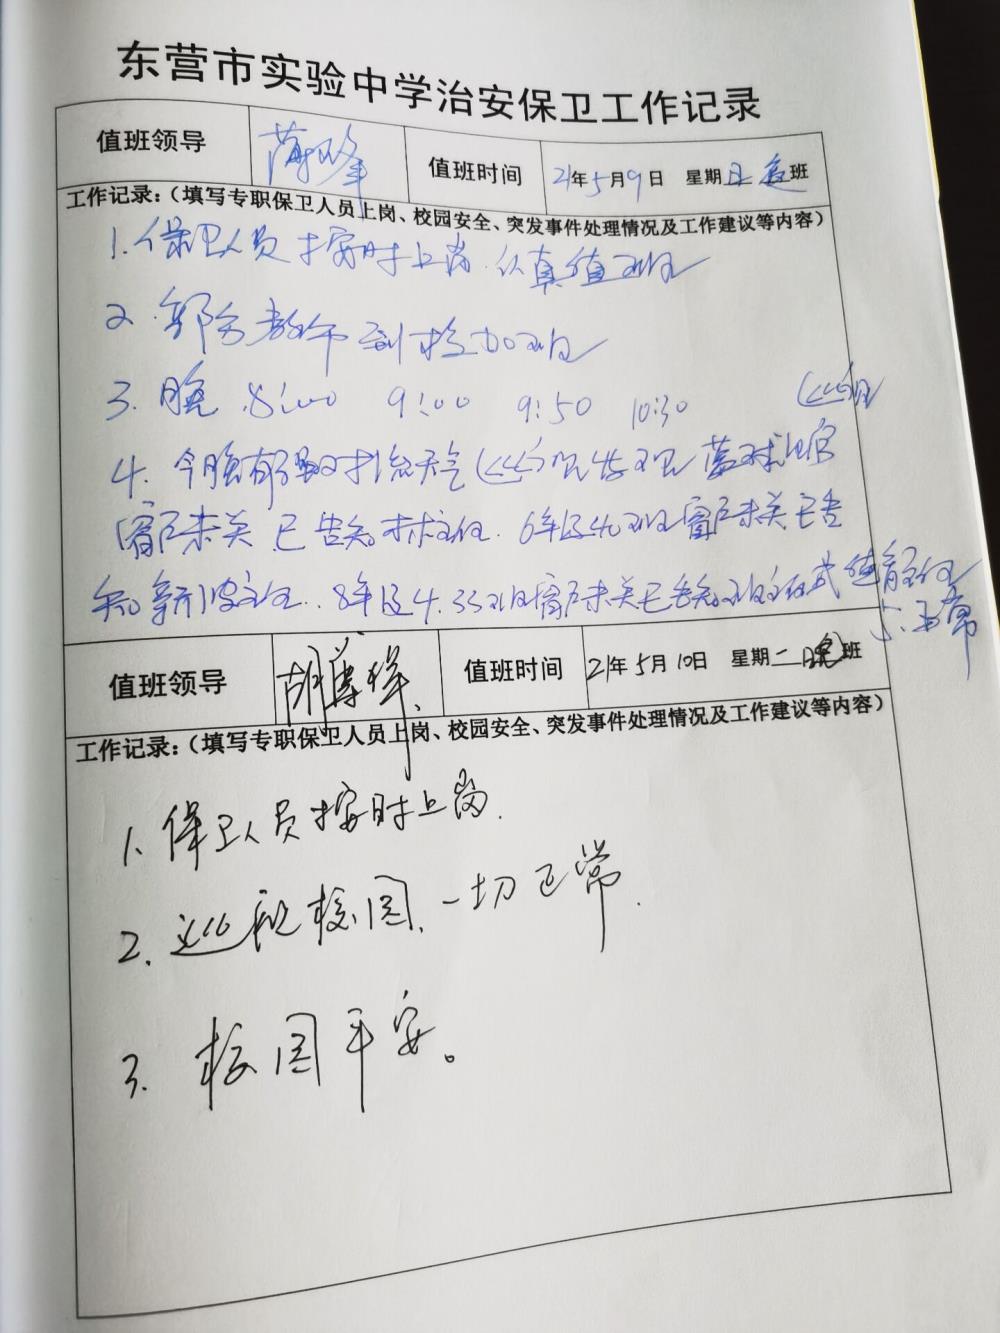 东营市实验中学治安保卫工作记录
值班领导 值班时间 21年5月9日 星期日 班
工作记录:(填写专职保卫人员上岗、校园安全、突发事件处理情况及工作建议等内容)
1.保卫人员按时上岗.认真值班
2.部分教师到校加班
3.晚.8:00 9:00 9:50 10:30
4.今晚有强对流天气 发现 篮球馆
窗户未关 已告知林主任. 6年级 班窗户未关 已告
知 主任..8年级4.33班窗户未关已告知班主任或德育主任
5.正常
值班领导 值班时间 21年5月10日 星期二晚班
工作记录:(填写专职保卫人员上岗、校园安全、突发事件处理情况及工作建议等内容)
1.保卫人员按时上岗.
2.巡视校园.一切正常.
3.校园平安。